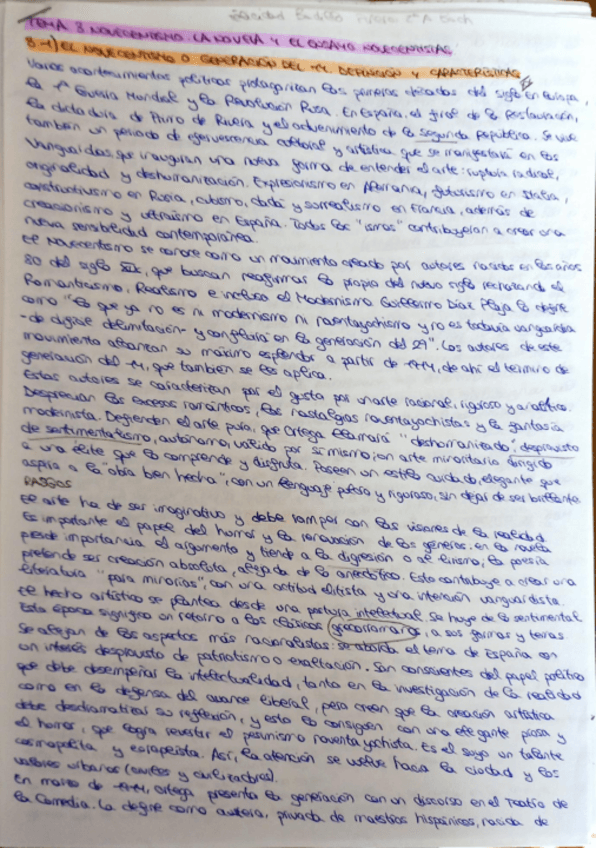 TEMA 8 NOVECENTISMO. LA NOVELA Y EL ENSAYO NOVECENTISTAS
8.1) EL NOVECENTISMO O GENERACIÓN DEL 14. DEFINICIÓN Y CARACTERÍSTICAS
Varios acontecimientos políticos protagonizan las primeras décadas del siglo en Europa,
la 1ª Guerra Mundial y la Revolución Rusa. En España, el final de la Restauración,
la dictadura de Primo de Rivera y el advenimiento de la segunda República. Se vive
también un periodo de efervescencia cultural y artística que se manifestará en las
Vanguardias, que inauguran una nueva forma de entender el arte: ruptura radical,
originalidad y deshumanización. Expresionismo en Alemania, futurismo en Italia,
constructivismo en Rusia, cubismo, dadá y surrealismo en Francia, además de
creacionismo y ultraísmo en España. Todos los "ismos" contribuyeron a crear una
nueva sensibilidad contemporánea.
El Novecentismo se conoce como un movimiento creado por autores nacidos en los años
80 del siglo XIX, que buscan reafirmar lo propio del nuevo siglo rechazando el
Romanticismo, Realismo e incluso el Modernismo. Guillermo Díaz Plaja lo define
como "lo que ya no es ni modernismo ni noventayochismo y no es todavía vanguardia
-de difícil delimitación- y confluirá en la generación del 27". Los autores de este
movimiento alcanzan su máximo esplendor a partir de 1914, de ahí el término de
generación del 14, que también se les aplica.
Estos autores se caracterizan por el gusto por un arte racional, riguroso y analítico.
Desprecian los excesos románticos, las nostalgias noventayochistas y la fantasía
modernista. Defienden el arte puro, que Ortega llamará "deshumanizado", desprovisto
de sentimentalismo, autónomo, válido por sí mismo; un arte minoritario dirigido
a una élite que lo comprende y disfruta. Poseen un estilo cuidado, elegante que
aspira a la "obra bien hecha", con un lenguaje pulcro y riguroso, sin dejar de ser brillante.
RASGOS
El arte ha de ser imaginativo y debe romper con las visiones de la realidad
Es importante el papel del humor y la renovación de los géneros: en la novela
pierde importancia el argumento y tiende a la digresión o al lirismo; la poesía
pretende ser creación absoluta, alejada de lo anecdótico. Esto contribuye a crear una
literatura "para minorías", con una actitud elitista y una intención vanguardista.
El hecho artístico se plantea desde una postura intelectual. Se huye de lo sentimental
Esta época significa un retorno a los clásicos grecorromanos, a sus formas y temas
Se alejan de los aspectos más nacionalistas: se aborda el tema de España con
un interés desprovisto de patriotismo o exaltación. Son conscientes del papel político
que debe desempeñar la intelectualidad, tanto en la investigación de la realidad
como en la defensa del avance liberal, pero creen que la creación artística
debe desdramatizar su reflexión, y esto lo consiguen con una elegante prosa y
el humor, que logra revestir el pesimismo noventayochista. Es el suyo un talante
cosmopolita y europeísta. Así, la atención se vuelve hacia la ciudad y los
valores urbanos (civiles y civilizadores).
En marzo de 1914, Ortega presenta la generación con un discurso en el Teatro de
la Comedia. La define como austera, privada de maestros hispánicos, nacida de